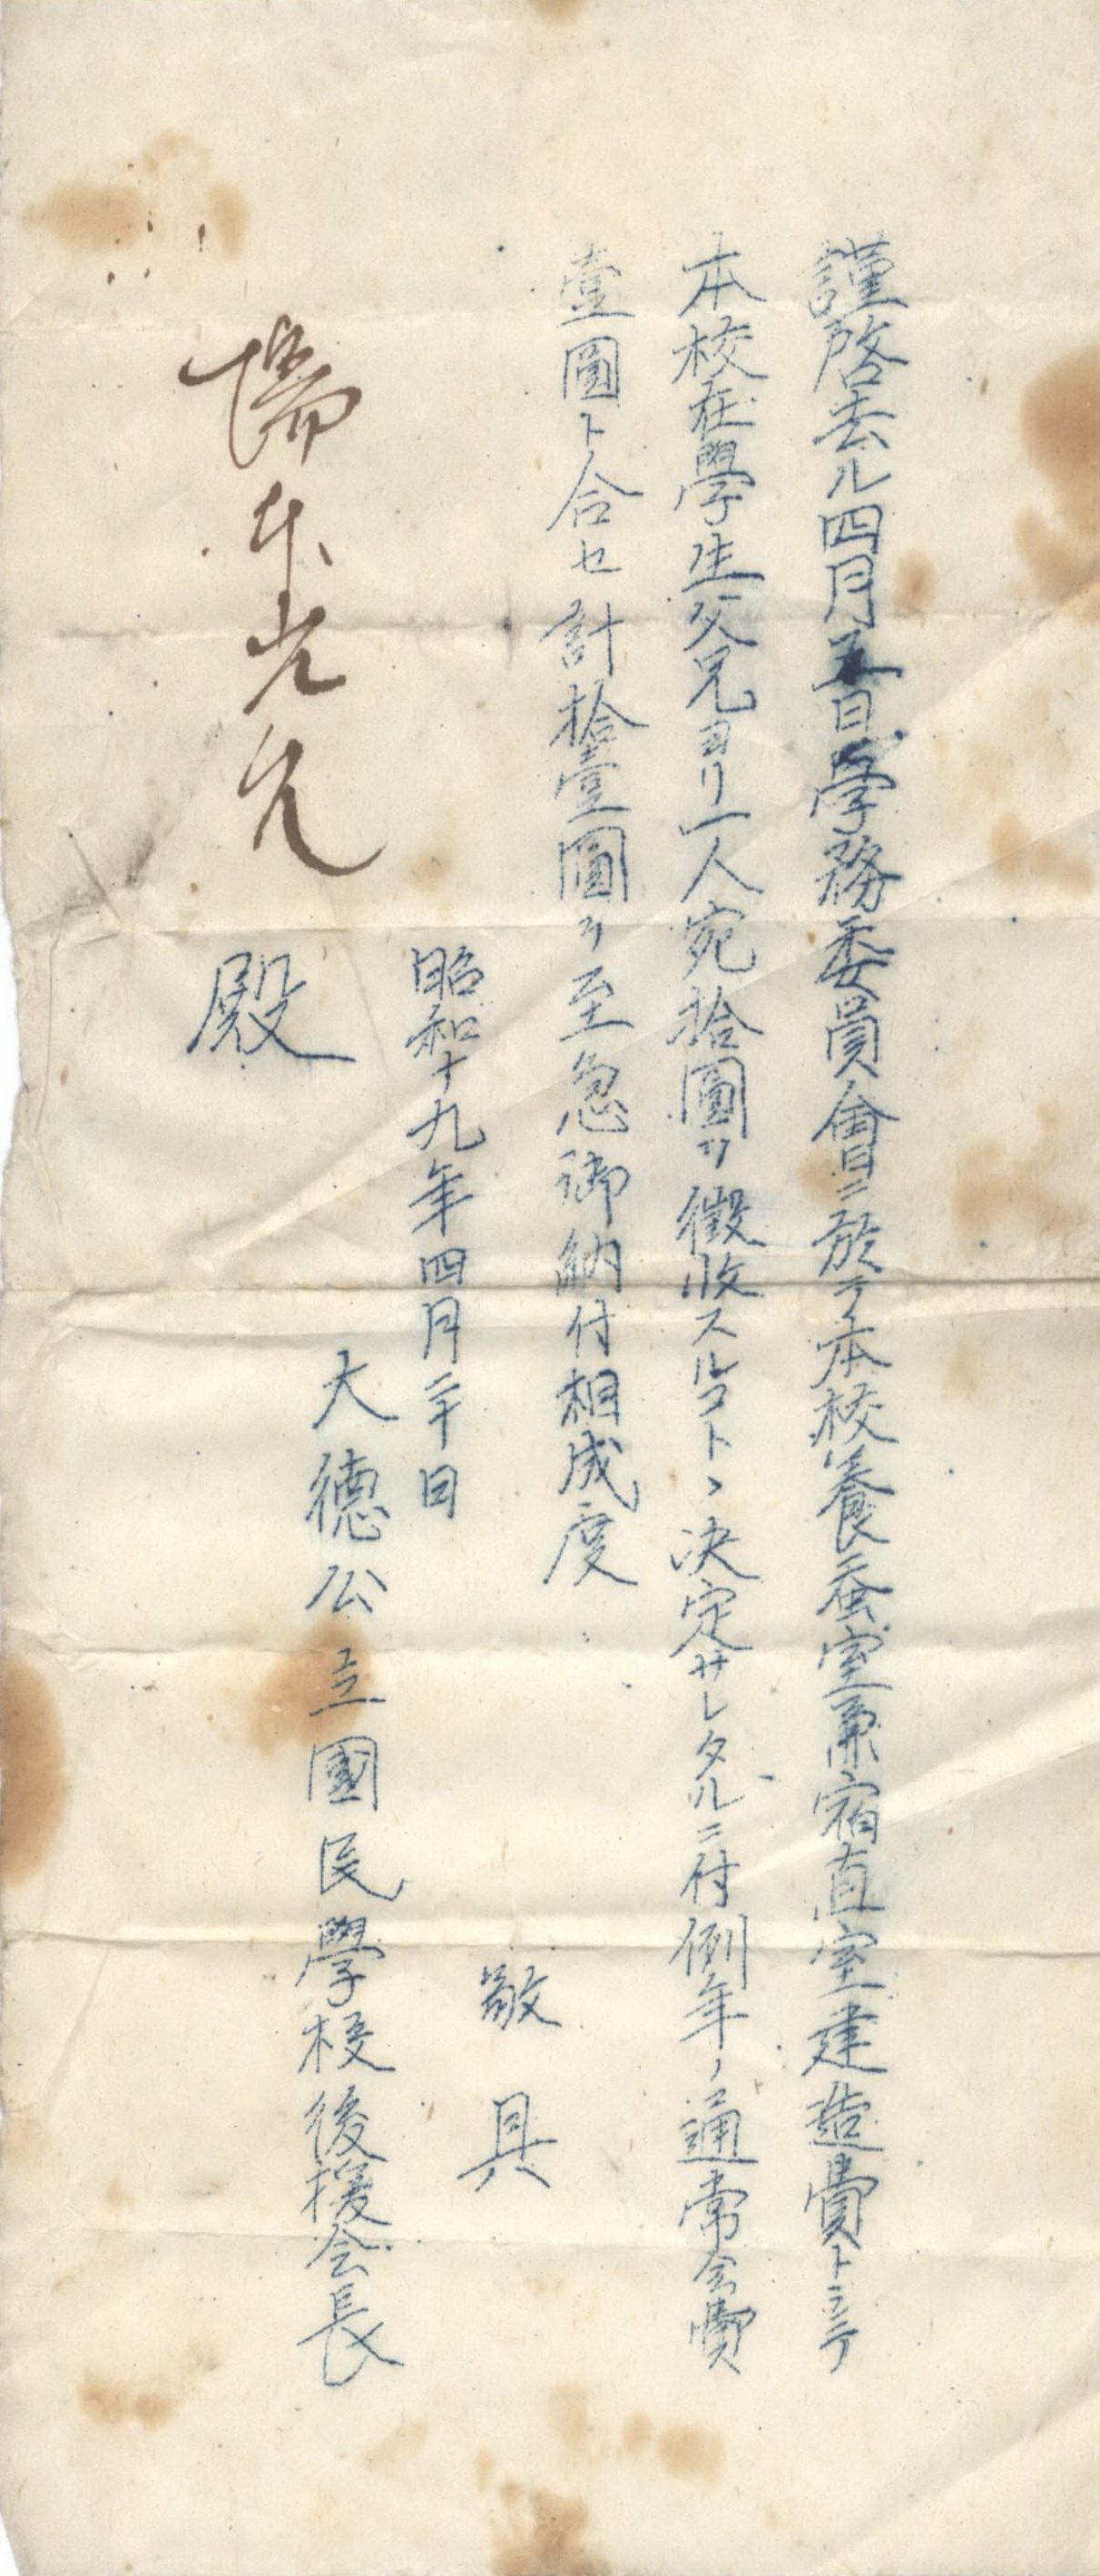 謹啓去ル四月五日學務委員會ニ於テ本校養蚕室兼宿直室建造費トシテ
本校在學生父兄ヨリ一人宛拾圓ヲ徴收スルコトヽ決定サレタルニ付例年ノ通常会費
壹圓ト合セ計拾壹圓ヲ至急御納付相成度
敬具
昭和十九年四月二十日
大德公立國民學校後援会長
本光允
殿